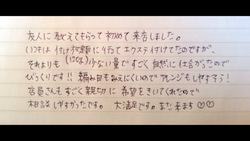 友人に教えてもらって初めて来店しました。
いつもは付け放題に行ってエクステ付けてたのですが、
それよりも(120本)少ない量ですごく自然に仕上がったので
びっくりです!! 編み目もみえにくいのでアレンジもしやすそう!
店員さんもすごく親切に希望をきいてくれたので
相談しやすかったです。大満足です。また来ます♡♡